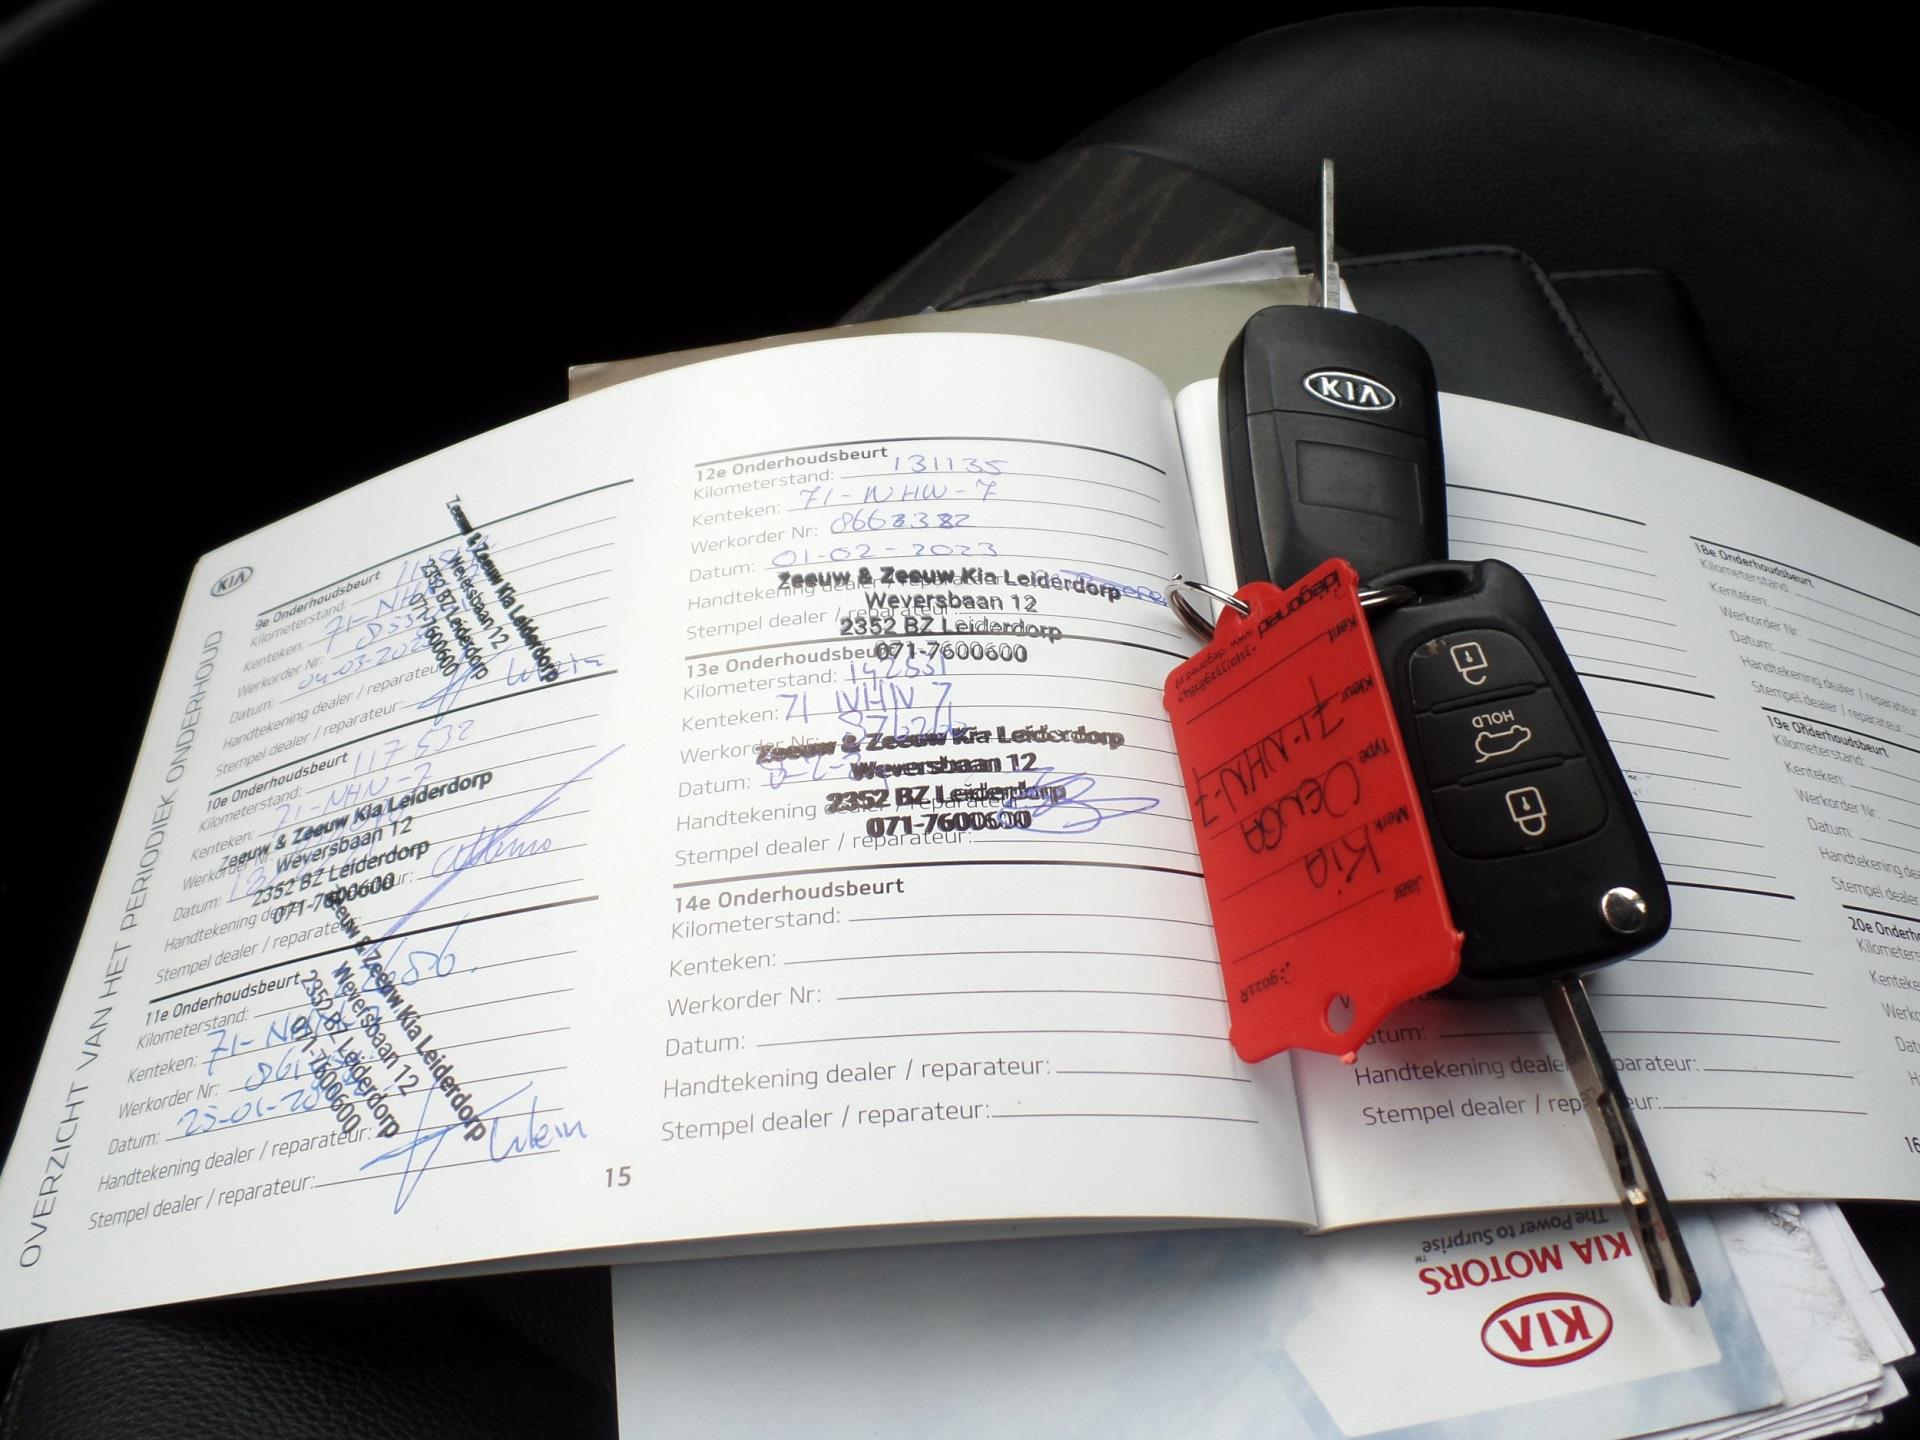 KIA
OVERZICHT VAN HET PERIODIEK ONDERHOUD
9e Onderhoudsbeurt
Kilometerstand:
Kenteken: 71-NH
Werkorder Nr:
Datum: 04-03-202
Handtekening dealer / reparateur:
Stempel dealer / reparateur:
Zeeuw & Zeeuw Kia Leiderdorp
Weversbaan 12
2352 BZ Leiderdorp
071-7600600
10e Onderhoudsbeurt
Kilometerstand: 117532
Kenteken: 71-NHN-7
Werkorder Nr:
Datum:
Handtekening dealer
Stempel dealer / reparateur:
Zeeuw & Zeeuw Kia Leiderdorp
Weversbaan 12
2352 BZ Leiderdorp
071-7600600
11e Onderhoudsbeurt
Kilometerstand:
Kenteken: 71-NHN-7
Werkorder Nr:
Datum: 25-01-20
Handtekening dealer / reparateur:
Stempel dealer / reparateur:
Zeeuw & Zeeuw Kia Leiderdorp
Weversbaan 12
2352 BZ Leiderdorp
071-7600600
15
12e Onderhoudsbeurt
Kilometerstand: 131135
Kenteken: 71-NHN-7
Werkorder Nr: 8663382
Datum: 01-02-2023
Handtekening dealer / reparateur:
Stempel dealer / reparateur:
Zeeuw & Zeeuw Kia Leiderdorp
Weversbaan 12
2352 BZ Leiderdorp
071-7600600
13e Onderhoudsbeurt
Kilometerstand: 142531
Kenteken: 71 NHN 7
Werkorder Nr:
Datum:
Handtekening dealer / reparateur:
Stempel dealer / reparateur:
Zeeuw & Zeeuw Kia Leiderdorp
Weversbaan 12
2352 BZ Leiderdorp
071-7600600
14e Onderhoudsbeurt
Kilometerstand:
Kenteken:
Werkorder Nr:
Datum:
Handtekening dealer / reparateur:
Stempel dealer / reparateur:
atum:
Handtekening deale reparateur:
Stempel dealer / rep eur:
18e Onderhoudsbeurt
Kilometerstand:
Kenteken:
Werkorder Nr:
Datum:
Handtekening dealer / reparateur
Stempel dealer / reparateur:
19e Onderhoudsbeurt
Kilometerstand:
Kenteken:
Werkorder Nr:
Datum:
Handtekening dealer
Stempel dealer
20e Onderh
Kilometers
Kenteke
Werko
Dat
16
KIA
HOLD
degoned
www.degoned.nl
Kent. 71-NHN-7
Kleur
Type
Merk Kia
Jaar
KIA MOTORS
The Power to Surprise™
KIA